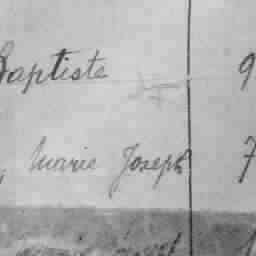 Baptiste 9
, Marie Joseph 7